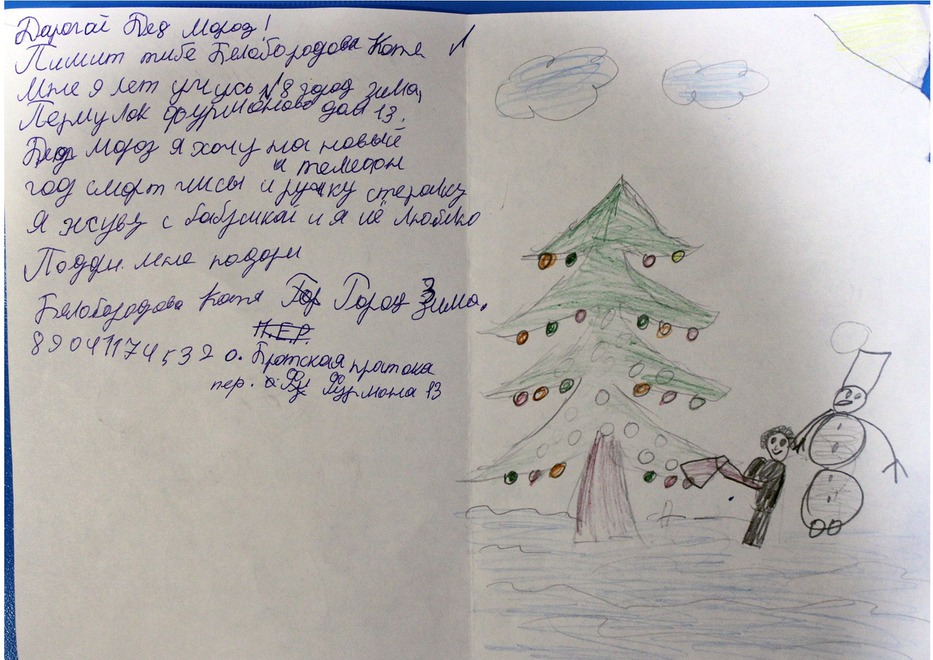 Дарогай Дед Мороз!
Пимит тибе Белобородова Катя
Мне 9 лет учусь №8 город зима,
Пермулок фурманова дом 13.
Дед Мороз я хочу на новый
и телефон
год смарт чисы и ручку стералку
Я жуву с бабушкай и я её люблю
Поддри мне подари
Белобородова Катя Гор Город Зима.
П.Е.Р.
89041174532 о. Братская пратока
пер. а Фу Фурмана 13